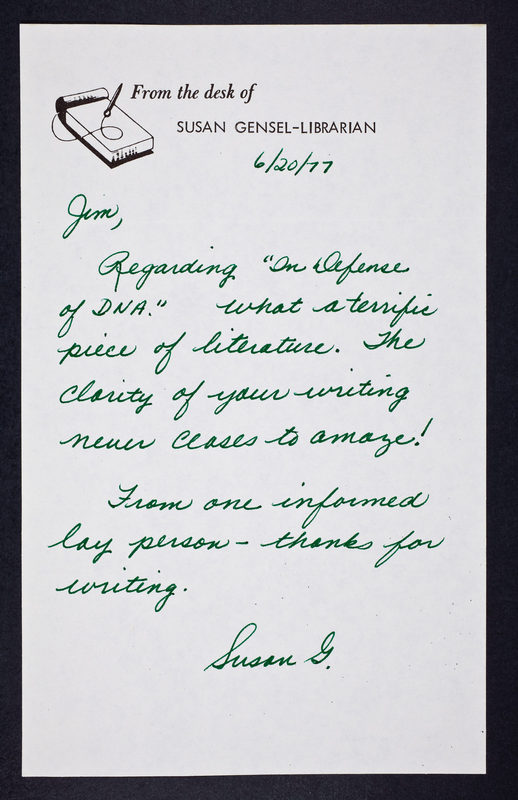 From the desk of
SUSAN GENSEL-LIBRARIAN
6/20/77
Jim,
Regarding "In Defense
of DNA." What a terrific
piece of literature. The
clarity of your writing
never ceases to amaze!
From one informed
lay person - thanks for
writing.
Susan G.